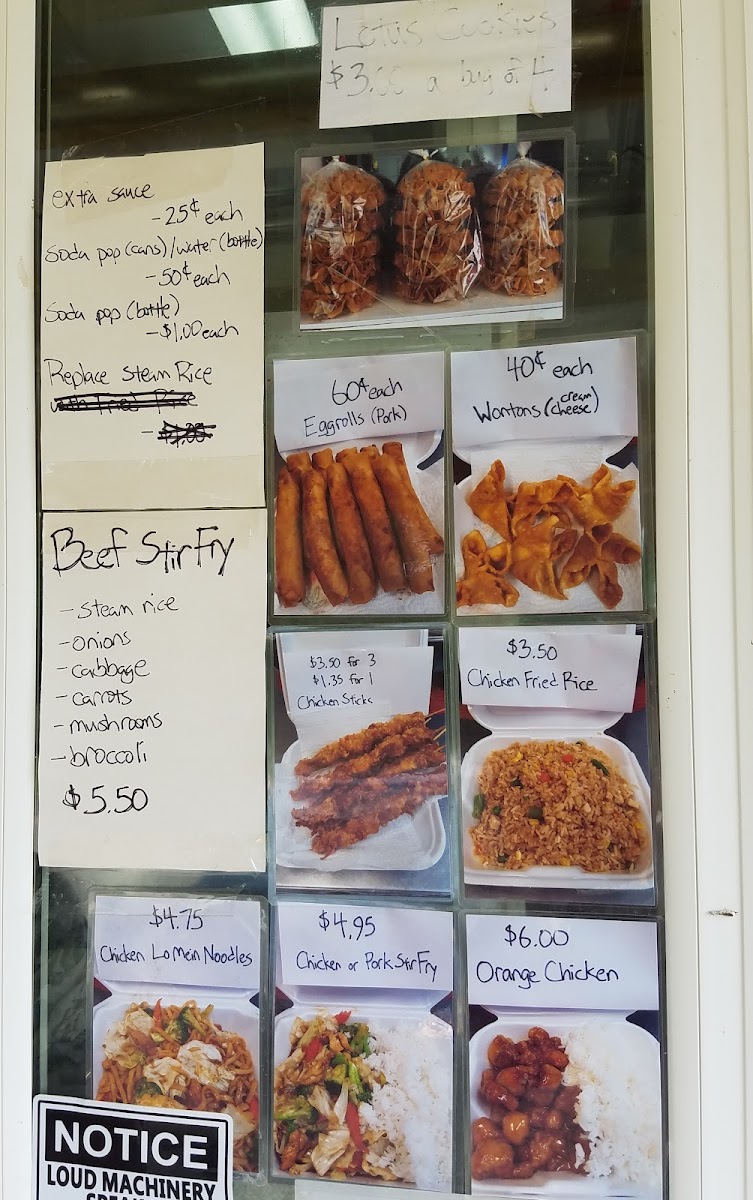 Lotus Cookies
a bag of 4
extra sauce
- 25¢ each
Soda pop (cans)/water (bottle)
- 50¢ each
Soda pop (bottle)
- $1.00 each
Replace Steam Rice
with Fried Rice
60¢ each
Eggrolls (Pork)
40¢ each
Wontons (cream cheese)
Beef Stir Fry
- steam rice
- onions
- cabbage
- carrots
- mushrooms
- broccoli
$5.50
$3.50 for 3
$1.35 for 1
Chicken Sticks
$3.50
Chicken Fried Rice
$4.75
Chicken Lo Mein Noodles
$4.95
Chicken or Pork Stir Fry
$6.00
Orange Chicken
NOTICE
LOUD MACHINERY